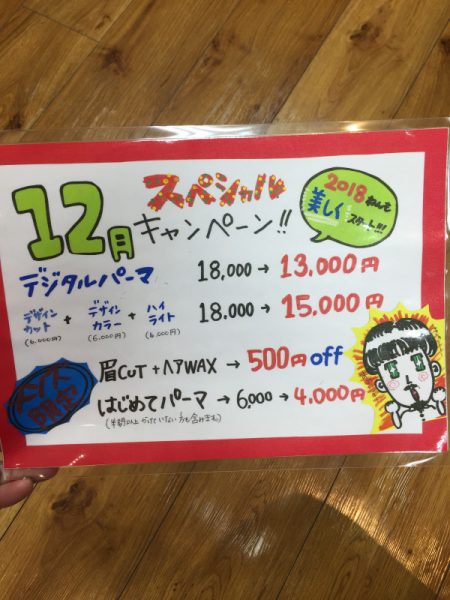 スペシャル
12月 キャンペーン!!
2018
ねんも
美しく
スタート!!!
デジタルパーマ 18,000→13,000円
デザインカット + デザインカラー + ハイライト 18,000→15,000円
(6,000円) (6,000円) (6,000円)
メンズ限定
眉CUT+ヘアWAX→500円off
はじめてパーマ→6,000→4,000円
(半年以上かけていない方も含みます)